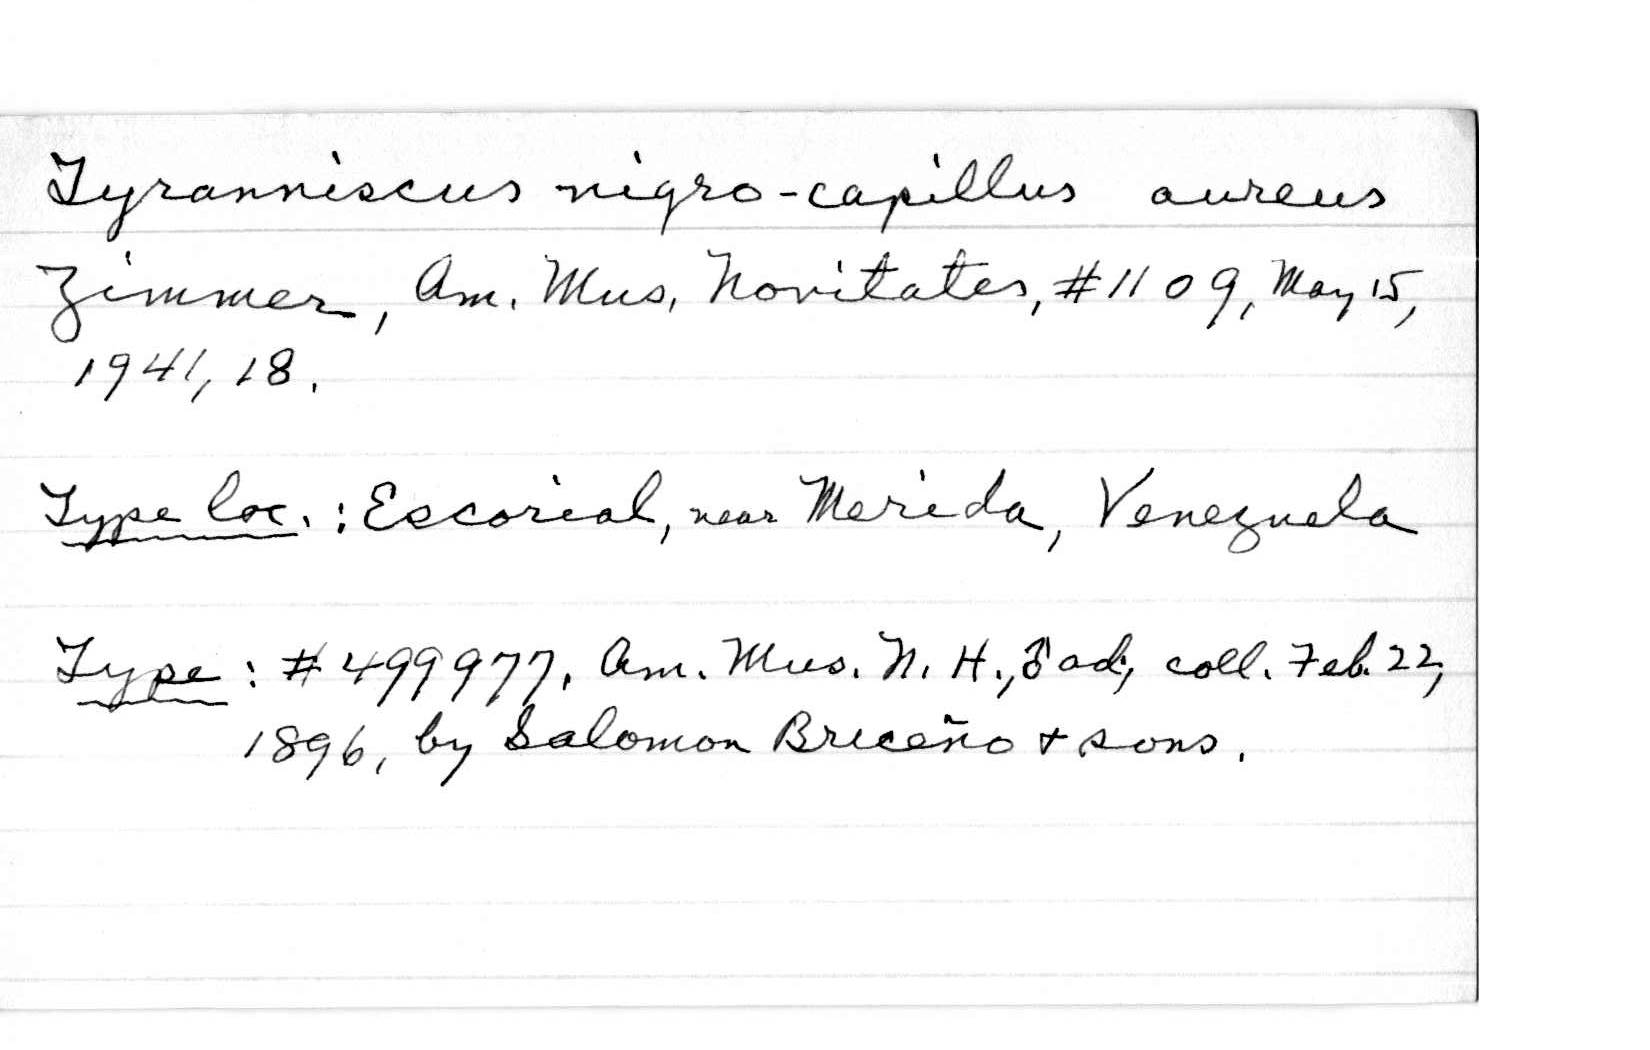 Tyranniscus nigro-capillus aureus
Zimmer, Am. Mus. Novitates, #1109, May 15,
1941, 18.
Type loc. : Escorial, near Merida, Venezuela
Type : #499977, Am. Mus. N. H., ♂ ad., coll. Feb. 22,
1896, by Salomon Briceño + sons.